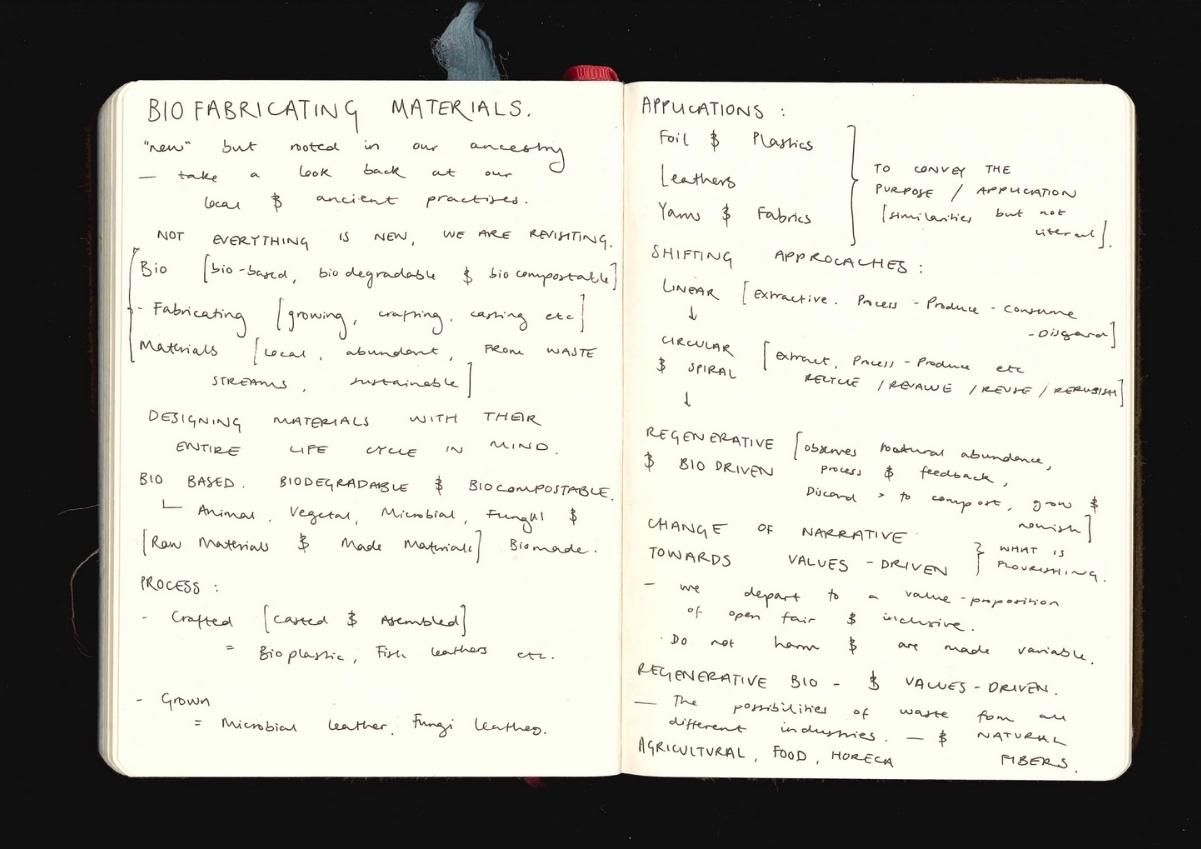 BIO FABRICATING MATERIALS.
"new" but rooted in our ancestry
— take a look back at our
local & ancient practises.
NOT EVERYTHING IS NEW, WE ARE REVISITING.
Bio [bio-based, biodegradable & biocompostable]
- Fabricating [growing, crafting, casting etc]
Materials [local, abundant, FROM WASTE
STREAMS, sustainable]
DESIGNING MATERIALS WITH THEIR
ENTIRE LIFE CYCLE IN MIND.
BIO BASED. BIODEGRADABLE & BIOCOMPOSTABLE.
Animal, Vegetal, Microbial, Fungal &
[Raw Materials & Made Materials] Biomade.
PROCESS:
- Crafted [casted & Asembled]
= Bioplastic, Fish leathers etc.
- Grown
= Microbial leather, Fungi leather.
APPLICATIONS:
Foil & Plastics
Leathers
Yarns & Fabrics
TO CONVEY THE
PURPOSE / APPLICATION
[similarities but not
literal].
SHIFTING APPROCACHES:
LINEAR [Extractive. Process - Produce - Consume
- Disgard]
↓
CIRCULAR
& SPIRAL [Extract, Process - Produce etc
RECYCLE / REVALUE / REUSE / RERUBISH]
↓
REGENERATIVE [observes natural abundance,
& BIO DRIVEN process & feedback,
Discard > to compost, grow &
nourish]
CHANGE OF NARRATIVE
TOWARDS VALUES-DRIVEN } WHAT IS
FLOURISHING.
- we depart to a value-proposition
of open fair & inclusive.
· Do not harm & are made variable.
REGENERATIVE BIO - & VALUES-DRIVEN.
— The possibilities of waste from all
different industries. — & NATURAL
FIBERS.
AGRICULTURAL, FOOD, HORECA